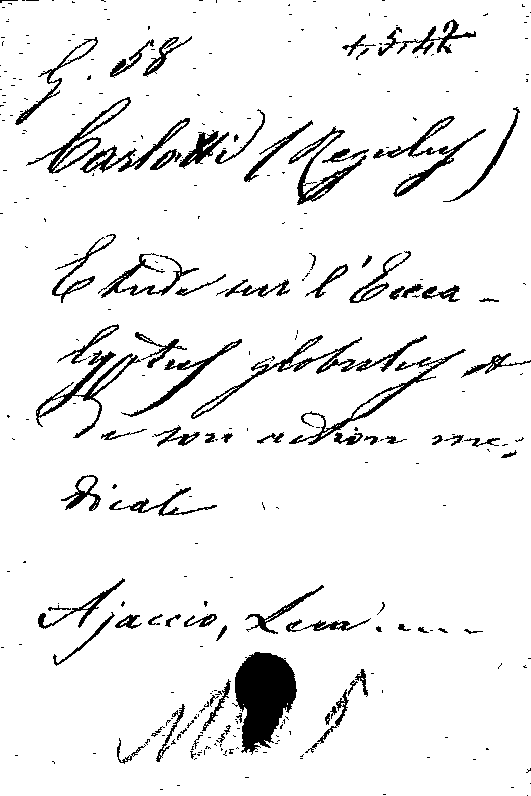 G. 58
Carlotti (Regulus)
Etude sur l'Eucca-
lyptus globulus et
de son action mé-
dicale
Ajaccio, Leca.....